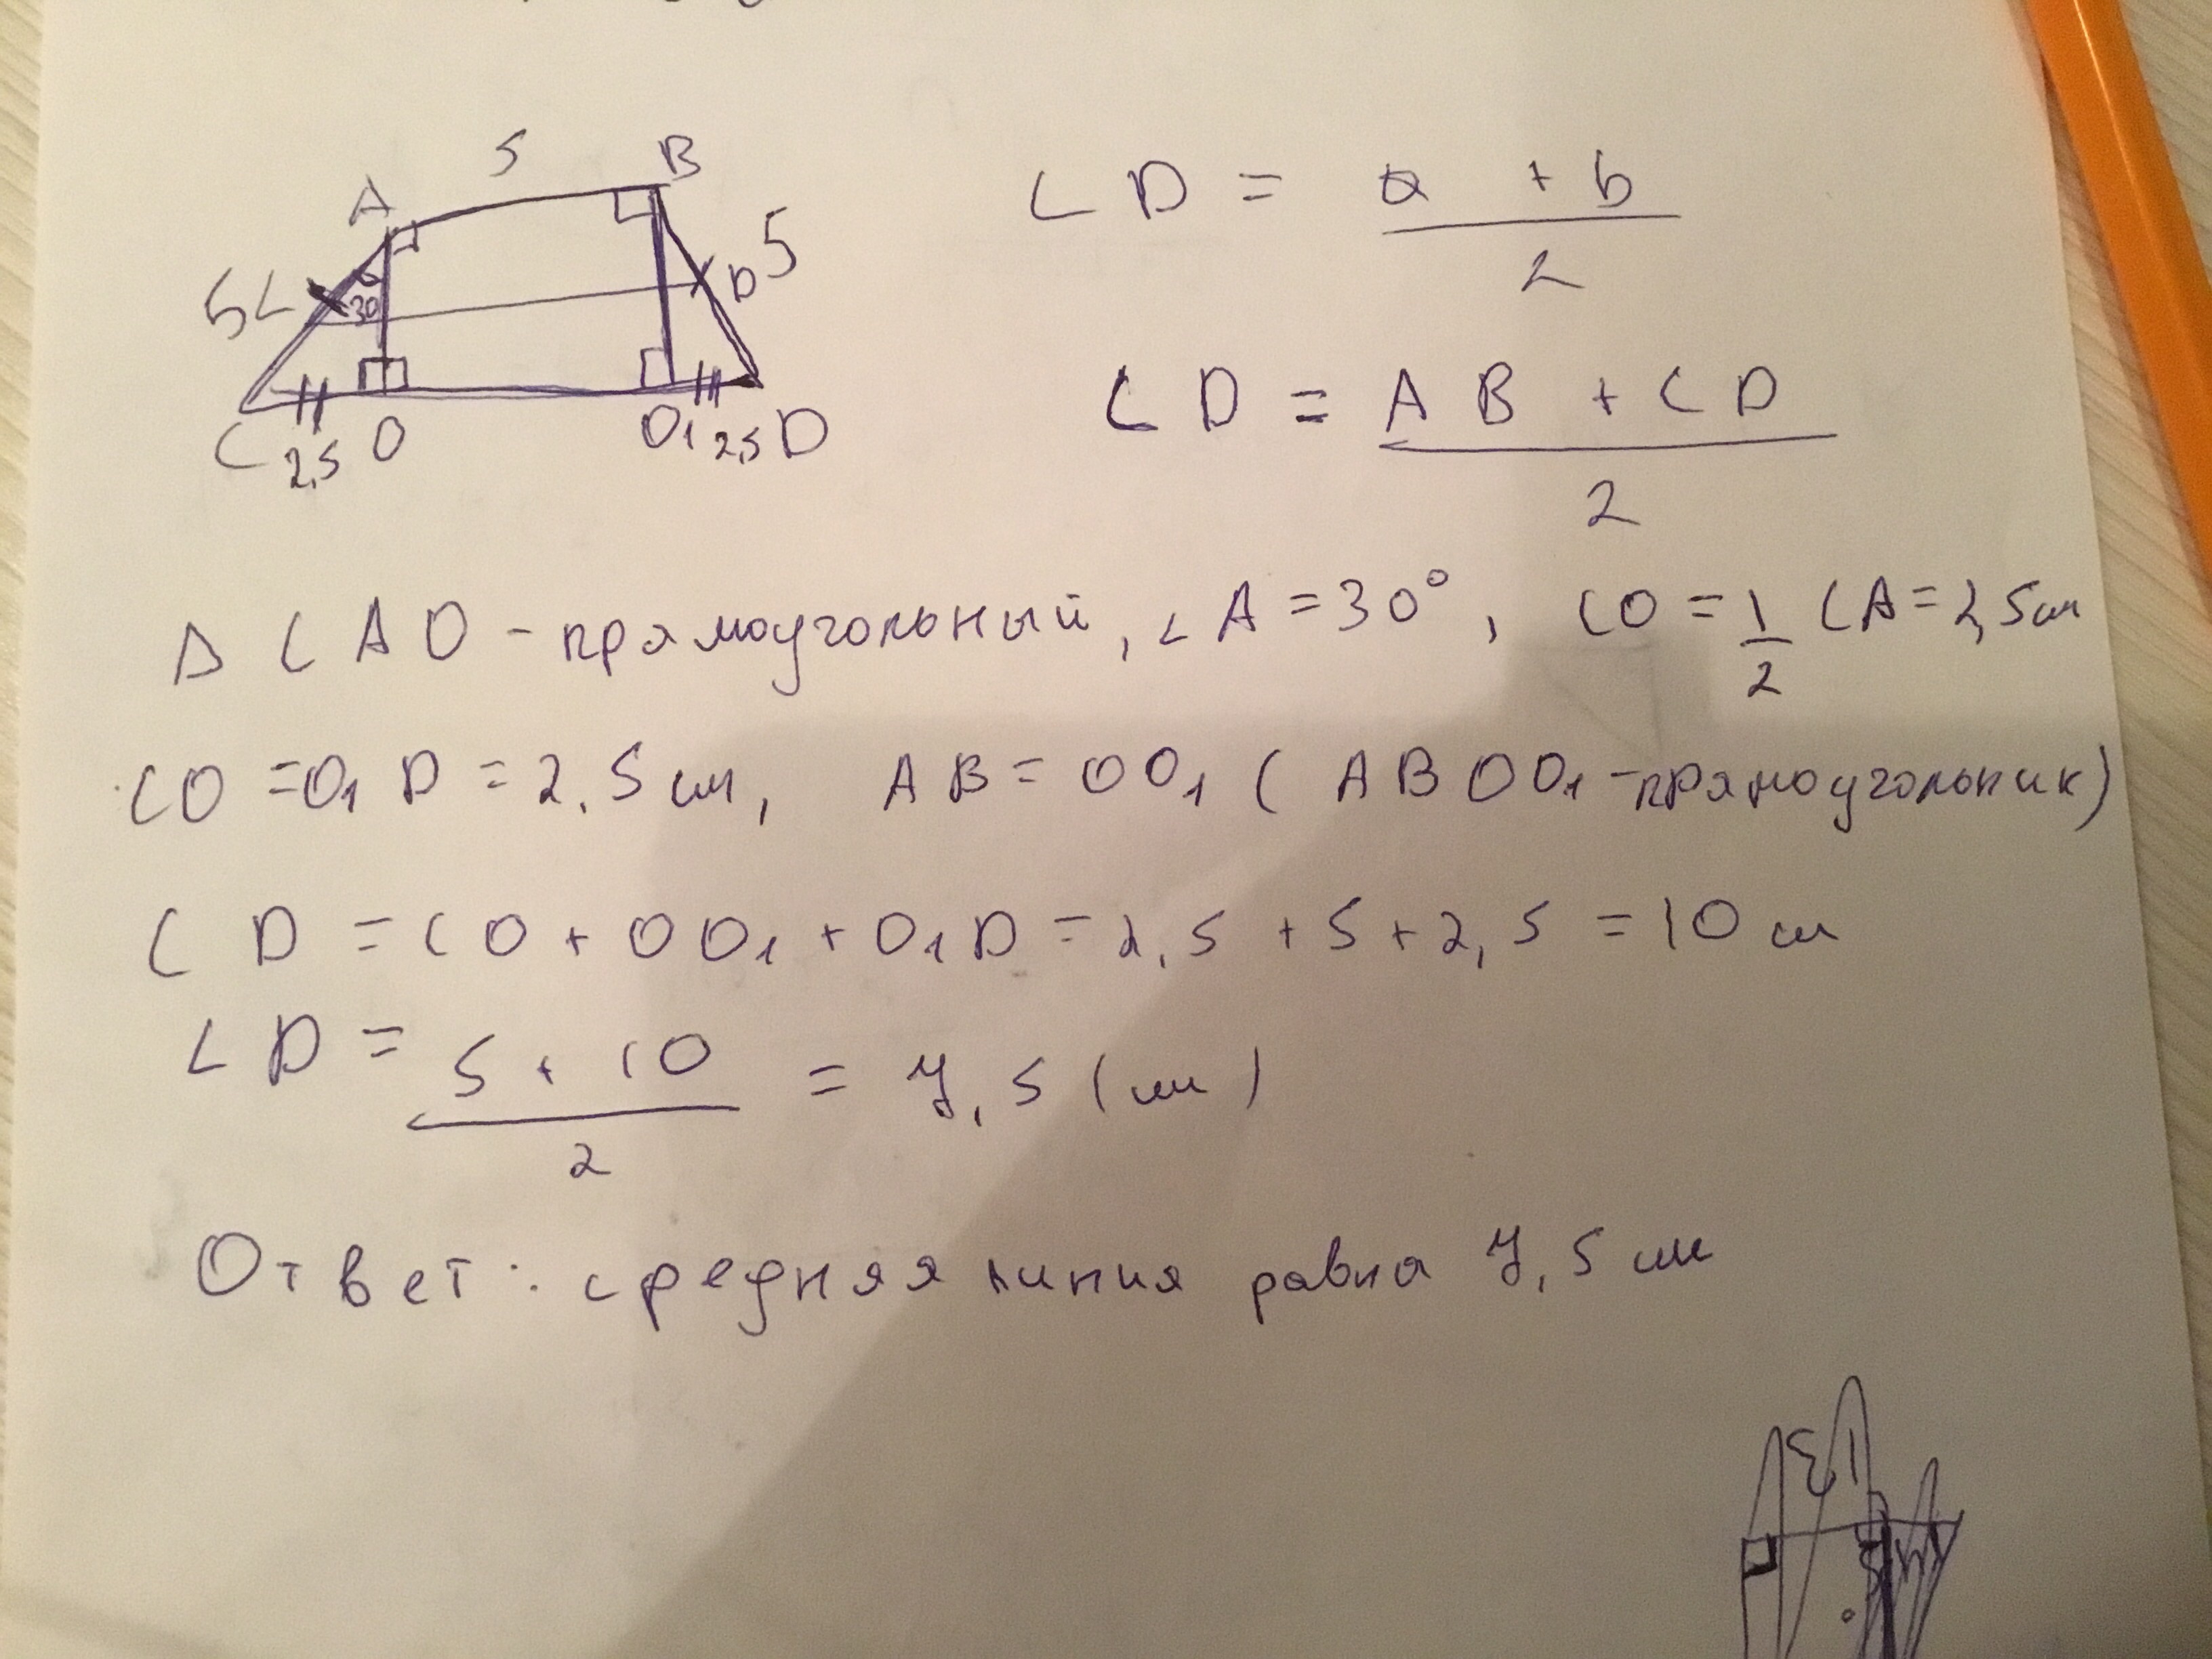 5
A B
5 L 30 D 5
C 2,5 O O₁ 2,5 D
LD = a + b / 2
LD = AB + CD / 2
Δ CAO - прямоугольный, ∠A = 30°, CO = 1/2 CA = 2,5 см
CO = O₁D = 2,5 см, AB = OO₁ (ABOO₁ - прямоугольник)
CD = CO + OO₁ + O₁D = 2,5 + 5 + 2,5 = 10 см
LD = 5 + 10 / 2 = 7,5 (см)
Ответ: средняя линия равна 7,5 см